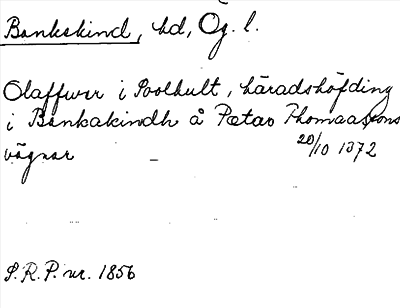 Bankekind, hd, Ög. l.
Olaffwer i Soolhult, häradshöfding
i Bankakindh å Pætars Thomaassons
vägnar – 20/10 1372
S.R.P. nr. 1856